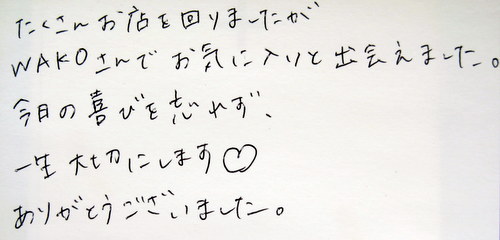 たくさんお店を回りましたが
WAKOさんでお気に入りと出会えました。
今日の喜びを忘れず、
一生大切にします♡
ありがとうございました。